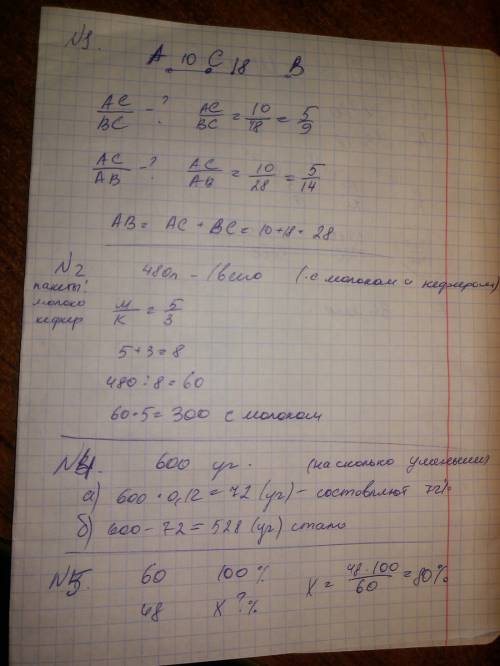 №1.
A 10 C 18 B
AC/BC - ? AC/BC = 10/18 = 5/9
AC/AB - ? AC/AB = 10/28 = 5/14
AB = AC + BC = 10+18 = 28
№2 480п - (всего (с молоком и кефиром)
пакеты:
молоко М/К = 5/3
кефир
5+3=8
480÷8=60
60·5=300 с молоком
№4. 600 уг. (на сколько уменьшил
а) 600·0,12=72 (уг) - составляют 12%
б) 600-72=528 (уг) стало
№5. 60 100% X = 48·100/60 = 80%
48 X ? %